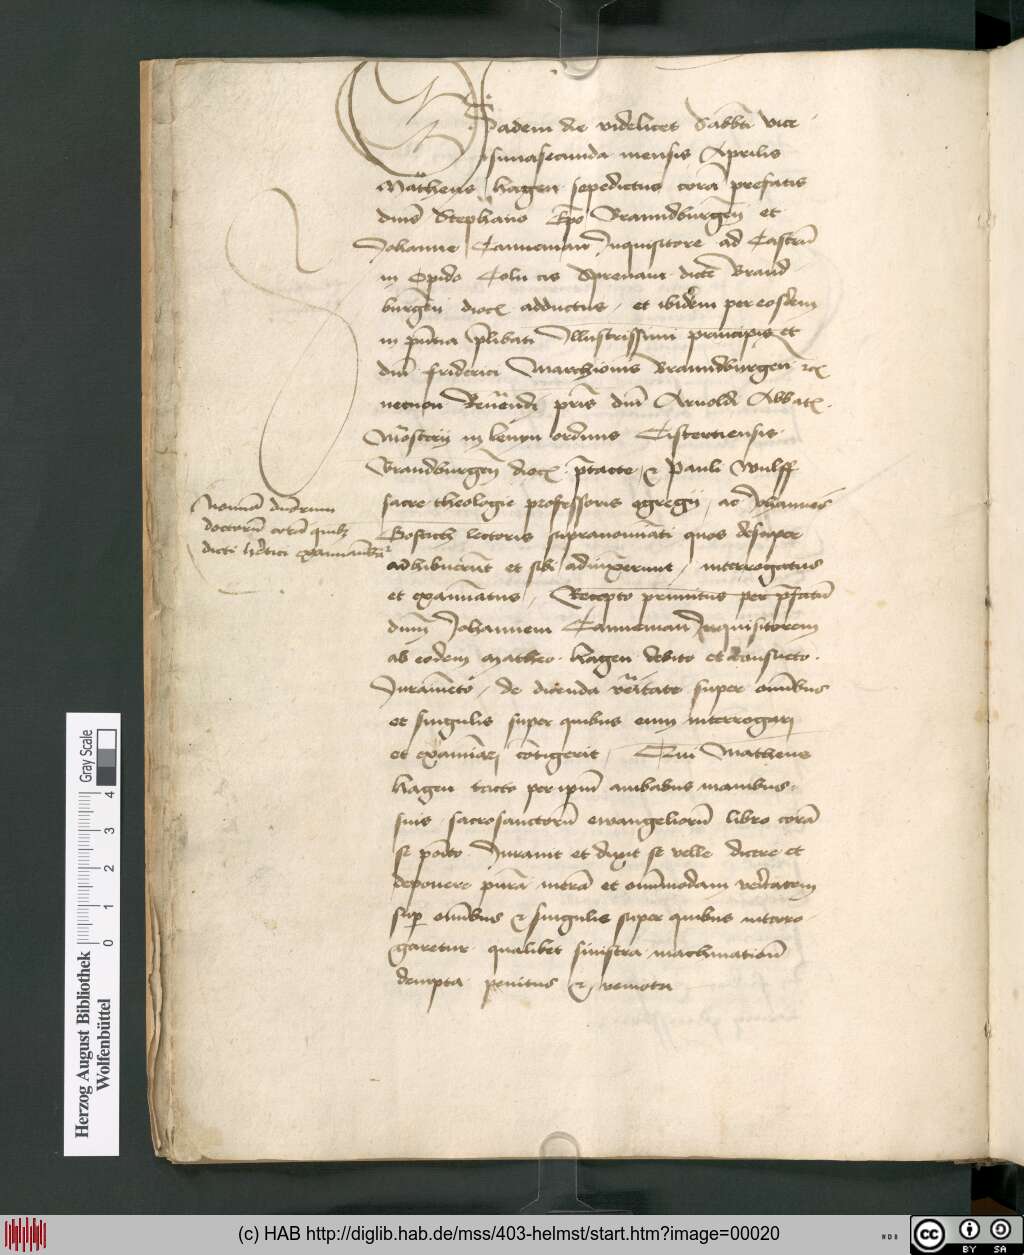 Eadem die videlicet Sabbti vice
simasecunda mensis Aprilis
Matheus hagen sepedictus corā prefatis
dnis Stephano Epo Brandburgēn et
Johanne Canneman Inquisitore ad Castrū
in Opido Coln cis Sprewam dicte Brand
burgēn dioc adductus, et ibidem per eosdem
in pñtia plibati Illustrissimi principis et
dnī friderici Marchionis Brandburgen̄ etc
necnon Reuēndi pris dnī Arnoldi Abbatis
Mōsterij in lenyn ordinis Cistertiensis
Brandburgen̄ dioc p̄tacte et Pauli Wulff
sacre theologie professoris egregij, ac Johannes
Bosack lectoris supranominati quos desuper
adhibuerūt et sibi adiūxerunt, interrogatus
et examinatus, Recepto primitus per p̄fatū
dnm̄ Johannem Canneman Inquisitorem
ab eodem Matheo hagen debito et consueto
Juramēto, de dicenda vēritate super omībus
et singulis super quibus eum interrogari
et examinari cōtigerit, Qui Matheus
hagen tacto per ipm̄ ambabus manibus
suis sacrosanctorū ewangeliorū libro corā
se posito Jurauit et dixit se velle dicere et
deponere purā merā et omīmodam veritatem
sup omībus et singulis super quibus interro
garetur qualibet sinistra machinationē
dempta penitus et remota
Nomina dn̄orum
doctorū corā quibz
dicti hēretici examinantur
Herzog August Bibliothek
Wolfenbüttel
0 1 2 3 4
Gray Scale
(c) HAB http://diglib.hab.de/mss/403-helmst/start.htm?image=00020
WDB
cc BY SA